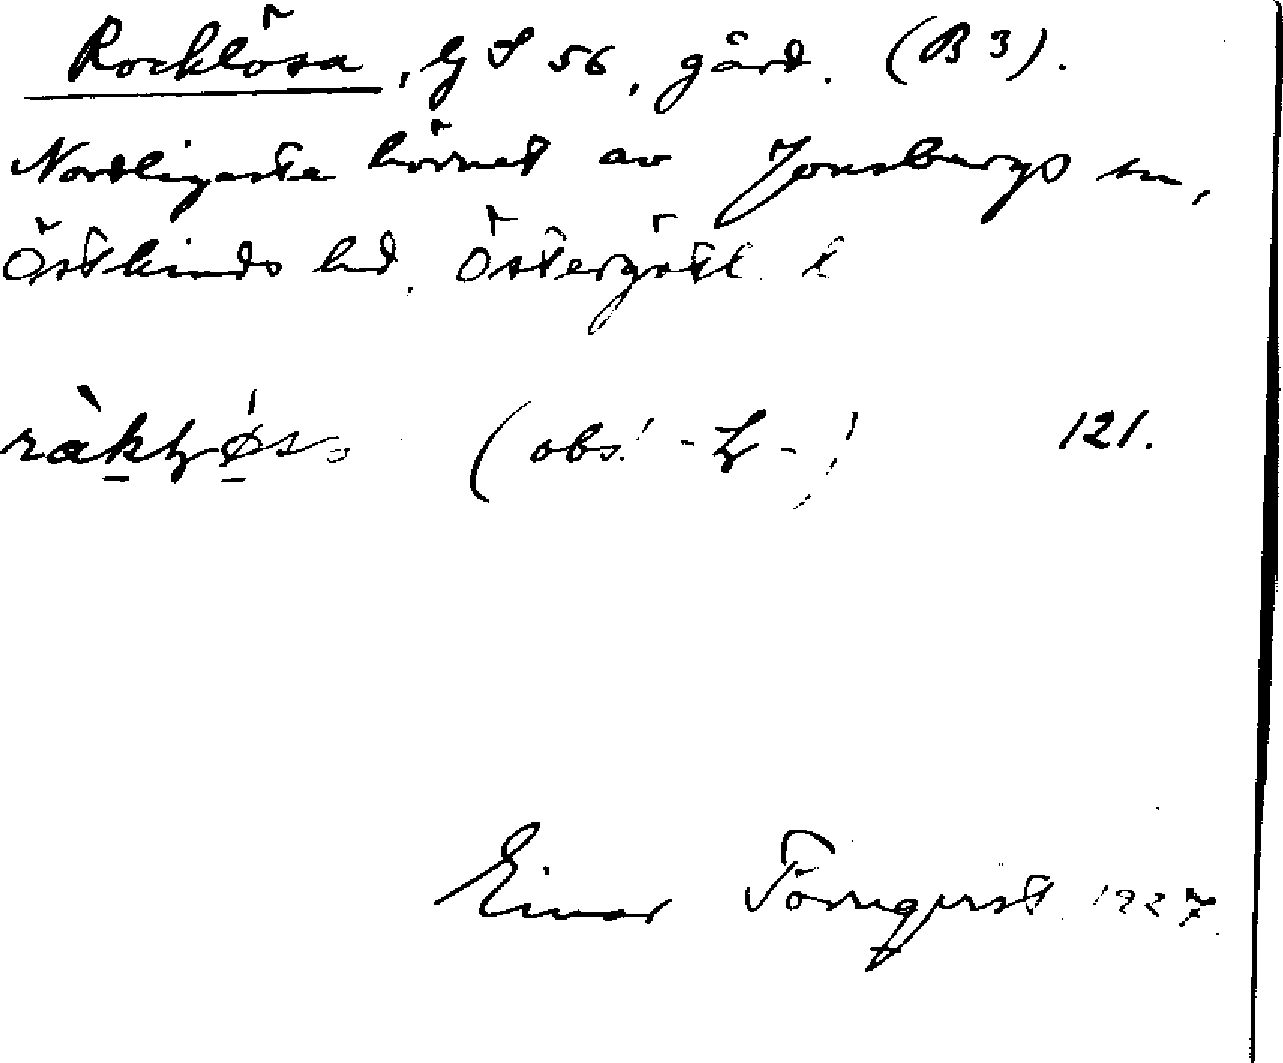 Rocklösa, Gg S 56, gård. (B 3).
Nordligaste hörnet av Jonsbergs sn,
Östkinds hd. Östergötl. l
(obs! -ɫ-!) 121.
Einar Törnqvist 1927.